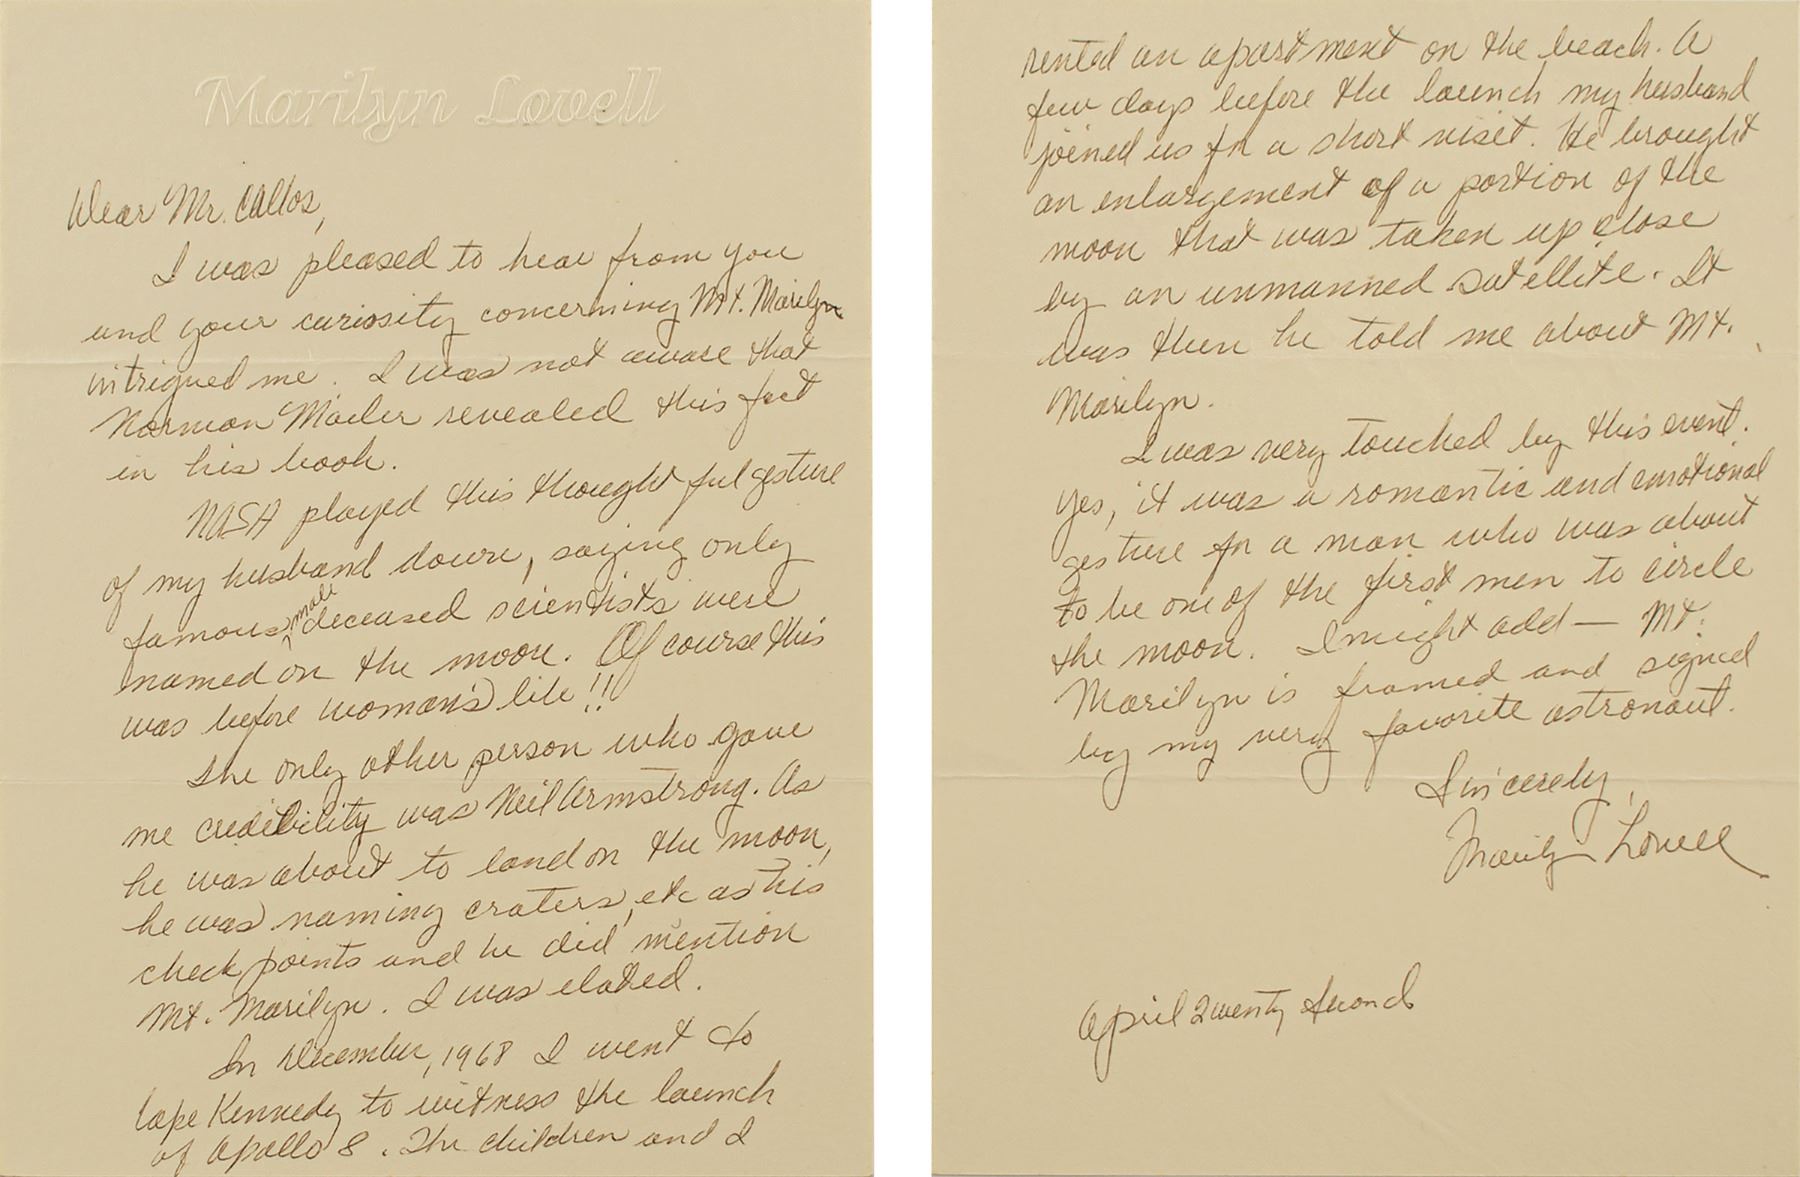 Marilyn Lovell
Dear Mr. Callos,
I was pleased to hear from you
and your curiosity concerning Mt. Marilyn
intrigued me. I was not aware that
Norman Mailer revealed this fact
in his book.
NASA played this thoughtful gesture
of my husband down, saying only
famous male deceased scientists were
named on the moon. Of course this
was before woman's lib!!
The only other person who gave
me credibility was Neil Armstrong. As
he was about to land on the moon,
he was naming craters, etc as his
check points and he did mention
Mt. Marilyn. I was elated.
In December, 1968 I went to
Cape Kennedy to witness the launch
of Apollo 8. The children and I
rented an apartment on the beach. A
few days before the launch my husband
joined us for a short visit. He brought
an enlargement of a portion of the
moon that was taken up close
by an unmanned satellite. It
was then he told me about Mt.
Marilyn.
I was very touched by this event.
Yes, it was a romantic and emotional
gesture for a man who was about
to be one of the first men to circle
the moon. I might add — Mt.
Marilyn is framed and signed
by my very favorite astronaut.
Sincerely,
Marilyn Lovell
April Twenty Second